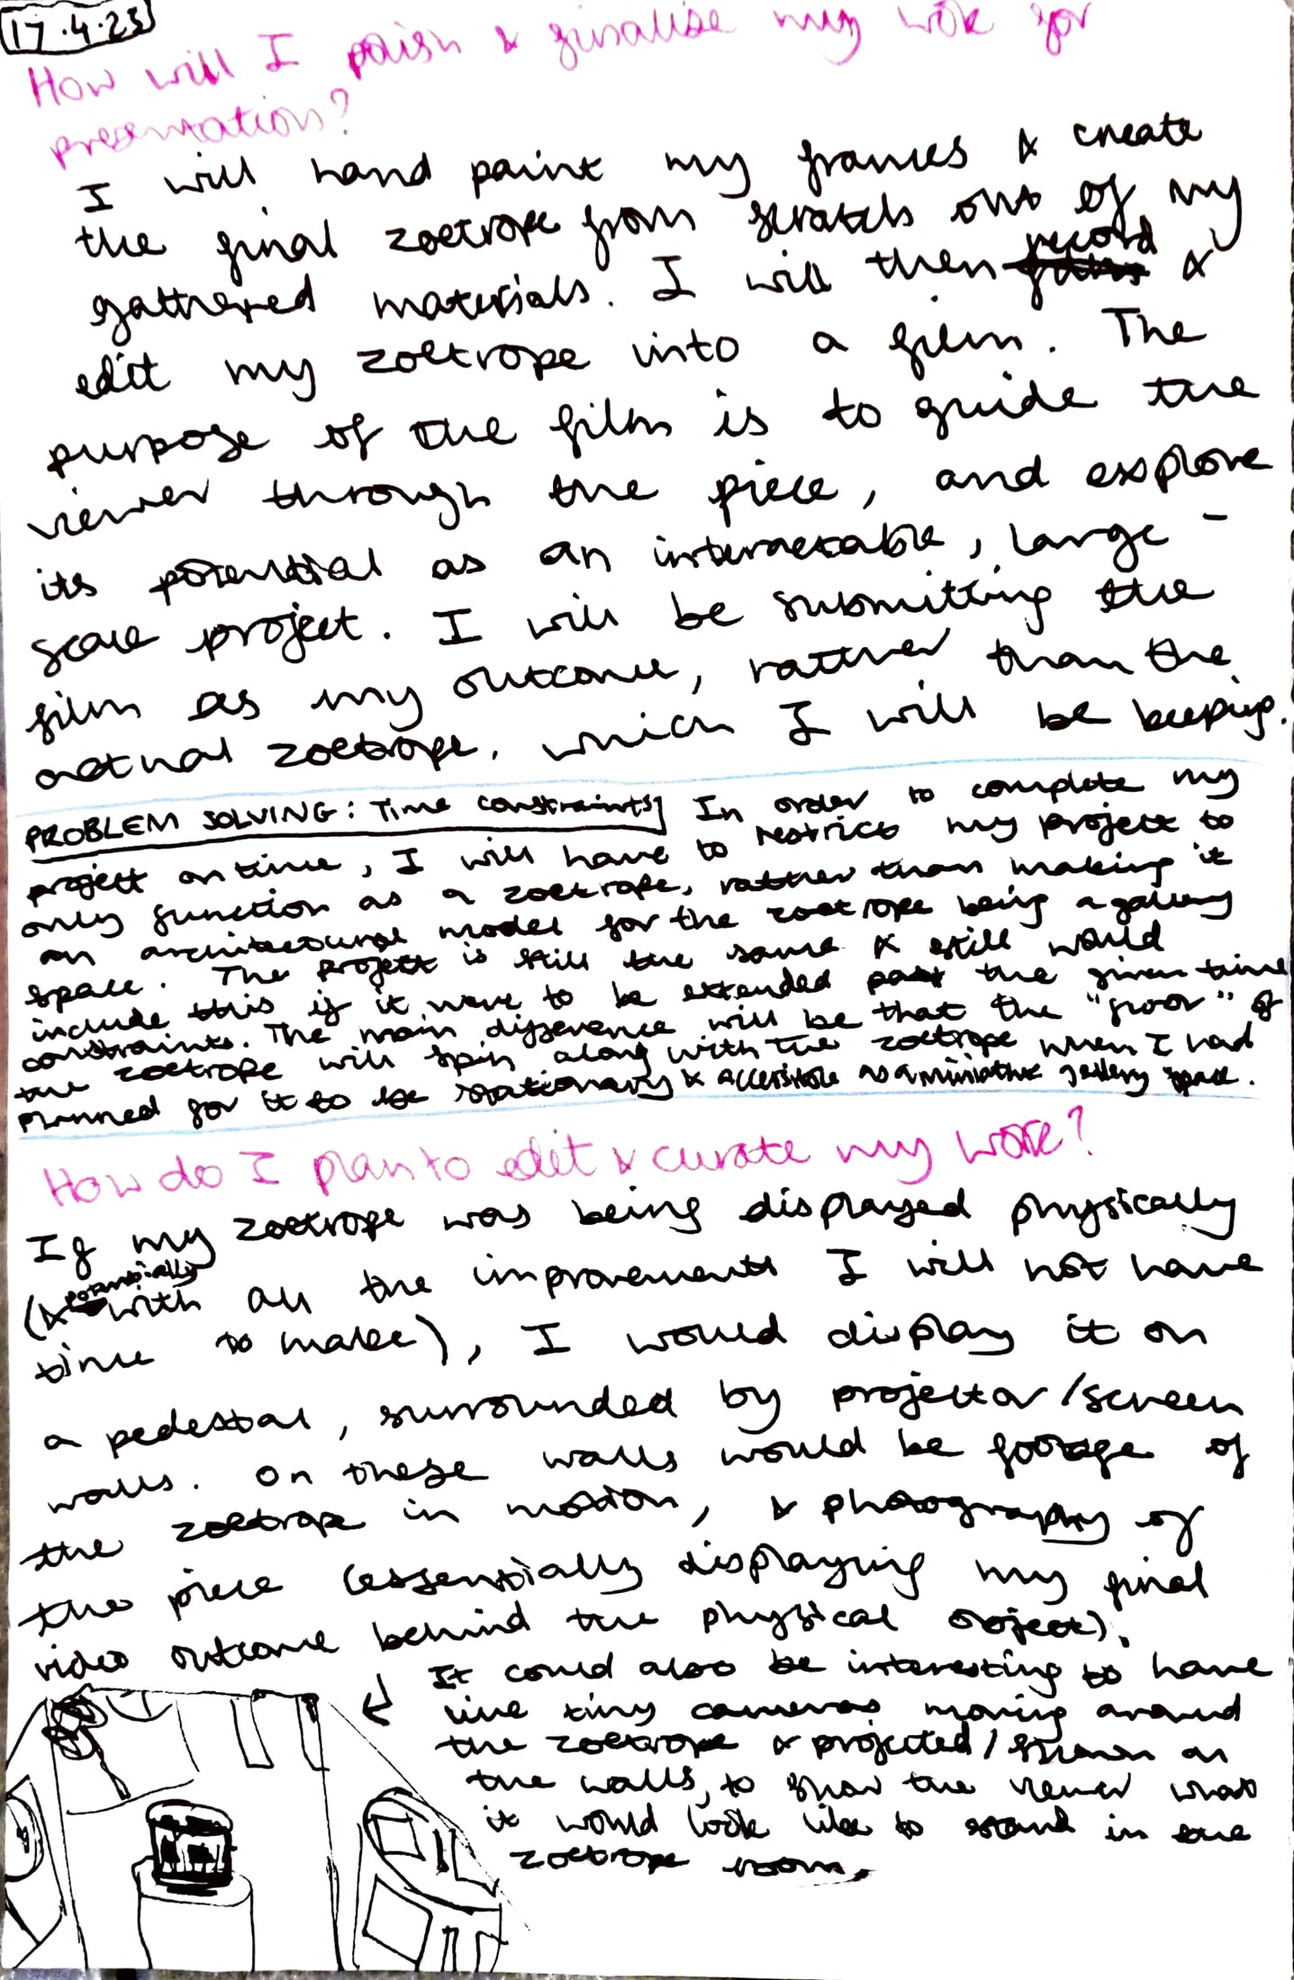 17.4.23
How will I polish & finalise my wok for
presentation?
I will hand paint my frames & create
the final zoetrope from scratch out of my
gathered materials. I will then record &
edit my zoetrope into a film. The
purpose of the film is to guide the
viewer through the piece, and explore
its potential as an interactable, large-
scale project. I will be submitting the
film as my outcome, rather than the
actual zoetrope, which I will be keeping.
PROBLEM SOLVING: Time constraints In order to complete my
project on time, I will have to restrict my project to
only function as a zoetrope, rather than making it
an architectural model for the zoetrope being a gallery
space. The project is still the same & still would
include this if it were to be extended past the given time
constraints. The main difference will be that the "floor" of
the zoetrope will spin along with the zoetrope when I had
planned for it to be stationary & accessible as a miniature gallery space.
How do I plan to edit & curate my work?
If my zoetrope was being displayed physically
(& potentially with all the improvements I will not have
time to make), I would display it on
a pedestal, surrounded by projector/screen
walls. On these walls would be footage of
the zoetrope in motion, & photography of
the piece (essentially displaying my final
video outcome behind the physical object).
It could also be interesting to have
live tiny cameras moving around
the zoetrope & projected/shown on
the walls, to show the viewer what
it would look like to stand in the
zoetrope room.